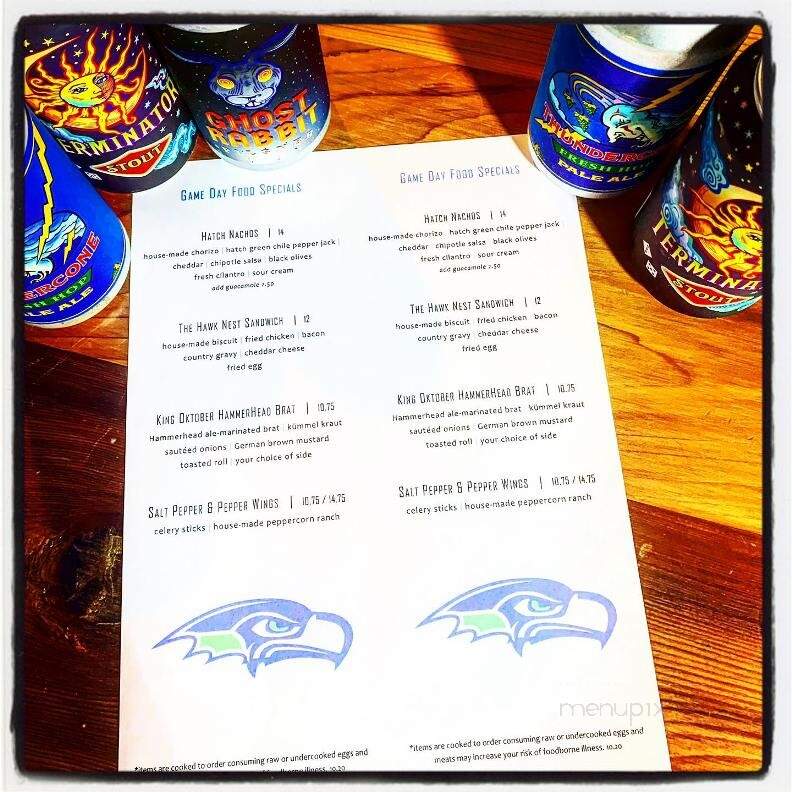 TERMINATOR
STOUT
GHOST
RABBIT
THUNDERCONE
FRESH HOP
PALE ALE
TERMINATOR
STOUT
ERCONE
SH HOP
ALE
GAME DAY FOOD SPECIALS
HATCH NACHOS | 14
house-made chorizo | hatch green chile pepper jack |
cheddar | chipotle salsa | black olives
fresh cilantro | sour cream
add guacamole 2.50
THE HAWK NEST SANDWICH | 12
house-made biscuit | fried chicken | bacon
country gravy | cheddar cheese
fried egg
KING OKTOBER HAMMERHEAD BRAT | 10.75
Hammerhead ale-marinated brat | kümmel kraut
sautéed onions | German brown mustard
toasted roll | your choice of side
SALT PEPPER & PEPPER WINGS | 10.75 / 14.75
celery sticks | house-made peppercorn ranch
*items are cooked to order consuming raw or undercooked eggs and
foodborne illness. 10.20
GAME DAY FOOD SPECIALS
HATCH NACHOS | 14
house-made chorizo | hatch green chile pepper jack |
cheddar | chipotle salsa | black olives
fresh cilantro | sour cream
add guacamole 2.50
THE HAWK NEST SANDWICH | 12
house-made biscuit | fried chicken | bacon
country gravy | cheddar cheese
fried egg
KING OKTOBER HAMMERHEAD BRAT | 10.75
Hammerhead ale-marinated brat | kümmel kraut
sautéed onions | German brown mustard
toasted roll | your choice of side
SALT PEPPER & PEPPER WINGS | 10.75 / 14.75
celery sticks | house-made peppercorn ranch
*items are cooked to order consuming raw or undercooked eggs and
meats may increase your risk of foodborne illness. 10.20
menupix